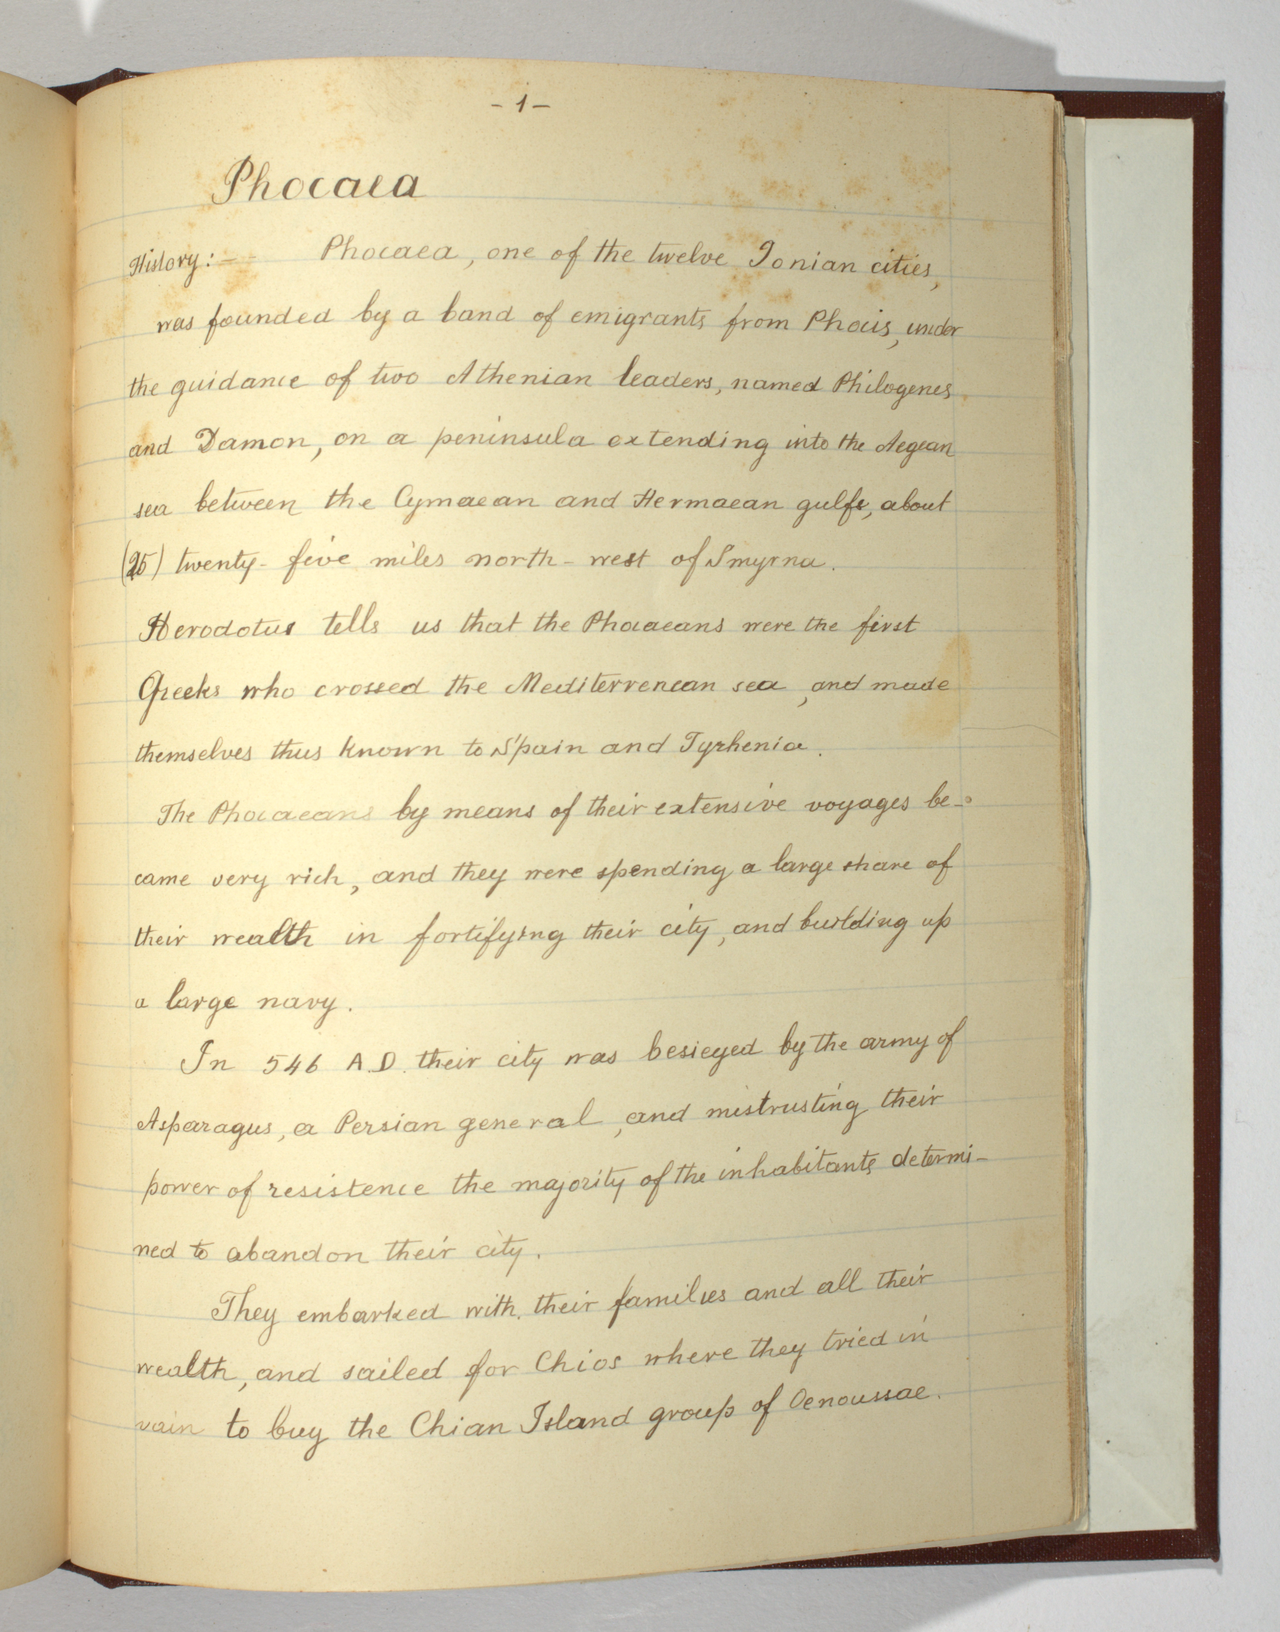 - 1 -
Phocaea
History: - - Phocaea, one of the twelve Ionian cities,
was founded by a band of emigrants from Phocis, under
the guidance of two Athenian leaders, named Philogenes
and Damon, on a peninsula extending into the Aegean
sea between the Cymaean and Hermaean gulfs, about
(25) twenty-five miles north-west of Smyrna.
Herodotus tells us that the Phocaeans were the first
Greeks who crossed the Mediterrenean sea, and made
themselves thus known to Spain and Tyrhenia.
The Phocaeans by means of their extensive voyages be-
came very rich, and they were spending a large share of
their wealth in fortifying their city, and building up
a large navy.
In 546 A.D. their city was besieged by the army of
Asparagus, a Persian general, and mistrusting their
power of resistence the majority of the inhabitants determi-
ned to abandon their city.
They embarked with their families and all their
wealth, and sailed for Chios where they tried in
vain to buy the Chian Island group of Oenoussae.